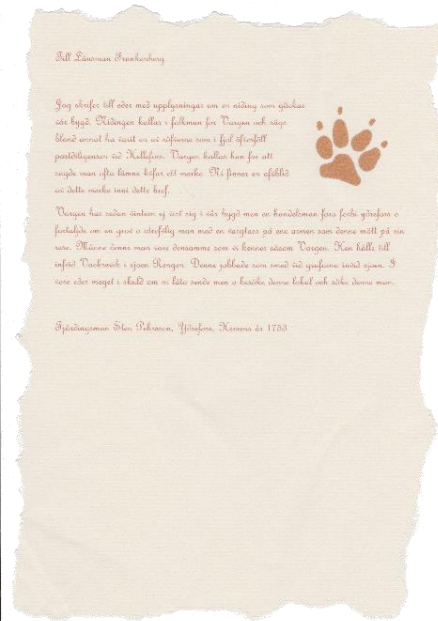 Till Länsman Frankenberg
Jag skrifer till eder med upplysningar om en niding som gäckar
vår bygd. Nidingen kallas i folkmun för Vargen och sägs
bland annat ha varit en av röfvarne som i fjol öfverföll
postdiligensen vid Hallefors. Vargen kallas han for att
sagde man ofta lämna efter ett märke. Ni finner en afbild
av dette märke inni dette bref.
Vargen har sedan vintern ej vist sig i vår bygd men en handelsman fara forbi ydrefors o
fortaljde om en grov o otrefllig man med en vargtass på ena armen som denne mött på sin
rese. Månne denne man vare densamme som vi kenner såsom Vargen. Han hålls till
infård Vackravik i sjoen Rengen. Denne jobbade som smed vid grufvorne invid sjoen. I
vore eder meget i skuld om vi läto sende men o besöke denne lokal och söke denne man.
Fjärdingsman Sten Pehrsson, Ydrefors, Herrens år 1753